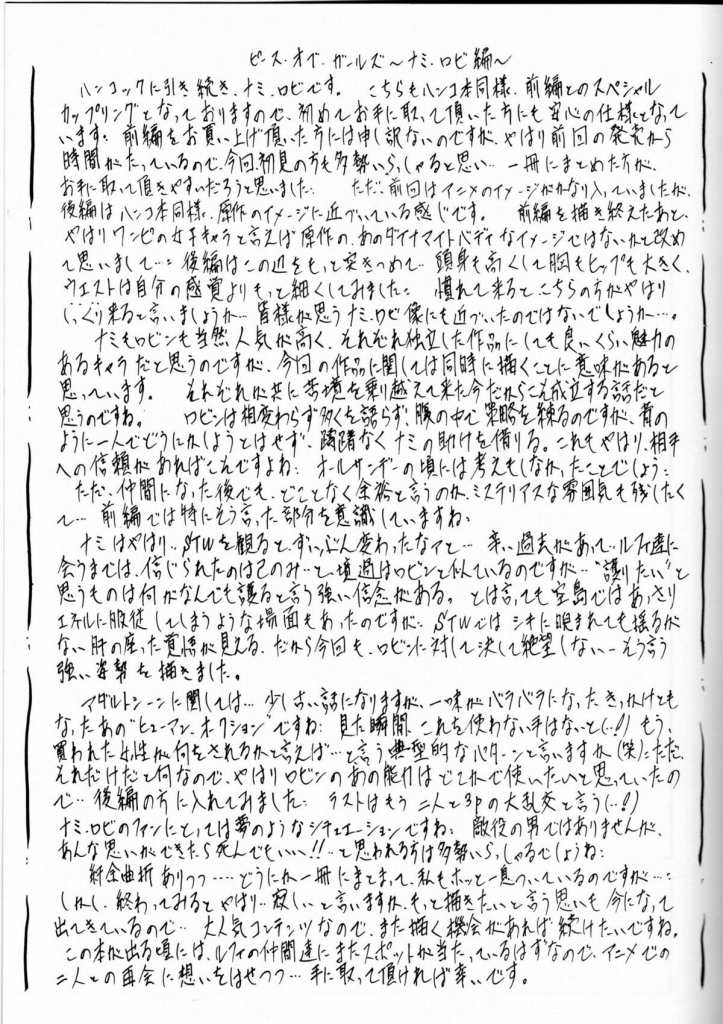 ピース・オブ・ガールズ～ナミ・ロビ編～
ハンコックに引き続き、ナミ・ロビです。 こちらもハンコ本同様、前編とのスペシャル
カップリングとなっておりますので、初めてお手に取って頂いた方にも安心の仕様となって
います。 前編をお買い上げ頂いた方には申し訳ないのですが、やはり前回の発売から
時間がたっているので、今回初見の方も多勢いらっしゃると思い… 一冊にまとめた方が、
お手に取って頂きやすいだろうと思いました。 ただ、前回はアニメのイメージがかなり入っていましたが、
後編はハンコ本同様、原作のイメージに近づいている感じです。 前編を描き終えたあと、
やはりワンピの女子キャラと言えば原作の、あのダイナマイトバディなイメージではないかと改め
て思いまして…。後編はこの辺をもっと突きつめて… 頭身も高くして胸もヒップも大きく、
ウエストは自分の感覚よりもっと細くしてみました。 慣れて来るとこちらの方がやはり
しっくり来ると言いましょうか… 皆様が思うナミ・ロビ像にも近づいたのではないでしょうか…。
ナミもロビンも当然人気が高く、それぞれ独立した作品にしても良いくらい魅力の
あるキャラだと思うのですが、今回の作品に関しては同時に描くことに意味があると
思っています。 それぞれが共に苦境を乗り越えて来た今だからこそ成立する話だと
思うのですね。 ロビンは相変わらず多くを語らず、腹の中で策略を練るのですが、昔の
ように一人でどうにかしようとはせず、躊躇なくナミの助けを借りる。これもやはり、相手
への信頼があればこそですよね。 オールサンデーの頃には考えもしなかったことでしょう。
ただ、仲間になった後でも、どことなく余裕と言うのか、ミステリアスな雰囲気も残したく
て… 前編では特にそう言った部分を意識していますね。
ナミはやはり、STWを観ると、ずいぶん変わったなァと… 辛い過去があって…ルフィ達に
会うまでは、信じられたのは己のみ…と、境遇はロビンと似ているのですが…“護りたい”と
思うものは何がなんでも護ると言う強い信念がある。 とは言っても空島ではあっさり
エネルに服従してしまうような場面もあったのですが… STWではシキに睨まれても揺るが
ない肝の座った覚悟が見える、だから今回も、ロビンに対して決して絶望しない…そう言う
強い姿勢を描きました。
アダルトシーンに関しては… 少し古い話になりますが、一味がバラバラになったきっかけとも
なったあの“ヒューマン・オークション”ですね。 見た瞬間、これを使わない手はないと(…!) もう、
買われた女性が何をされるかと言えば…と言う典型的なパターンと言いますか(笑)。ただ、
それだけだと何なので、やはりロビンのあの能力はどこかで使いたいと思っていたの
で… 後編の方に入れてみました。 ラストはもう二人と3Pの大乱交と言う(…!)
ナミ・ロビのファンにとっては夢のようなシチュエーションですね。 敵役の男ではありませんが、
あんな思いができたら死んでもいい!!…と思われる方は多勢いらっしゃるでしょうね。
紆余曲折ありつつ…‥どうにか一冊にまとまって、私もホッと一息ついているのですが…。
しかし、終わってみるとやはり…寂しいと言いますか、もっと描きたいと言う思いも今になって
出てきているので… 大人気コンテンツなので、また描く機会があれば続けたいですね。
この本が出る頃には、ルフィの仲間達にまたスポットが当たっているはずなので、アニメでの
二人との再会に想いをはせつつ… 手に取って頂ければ幸いです。